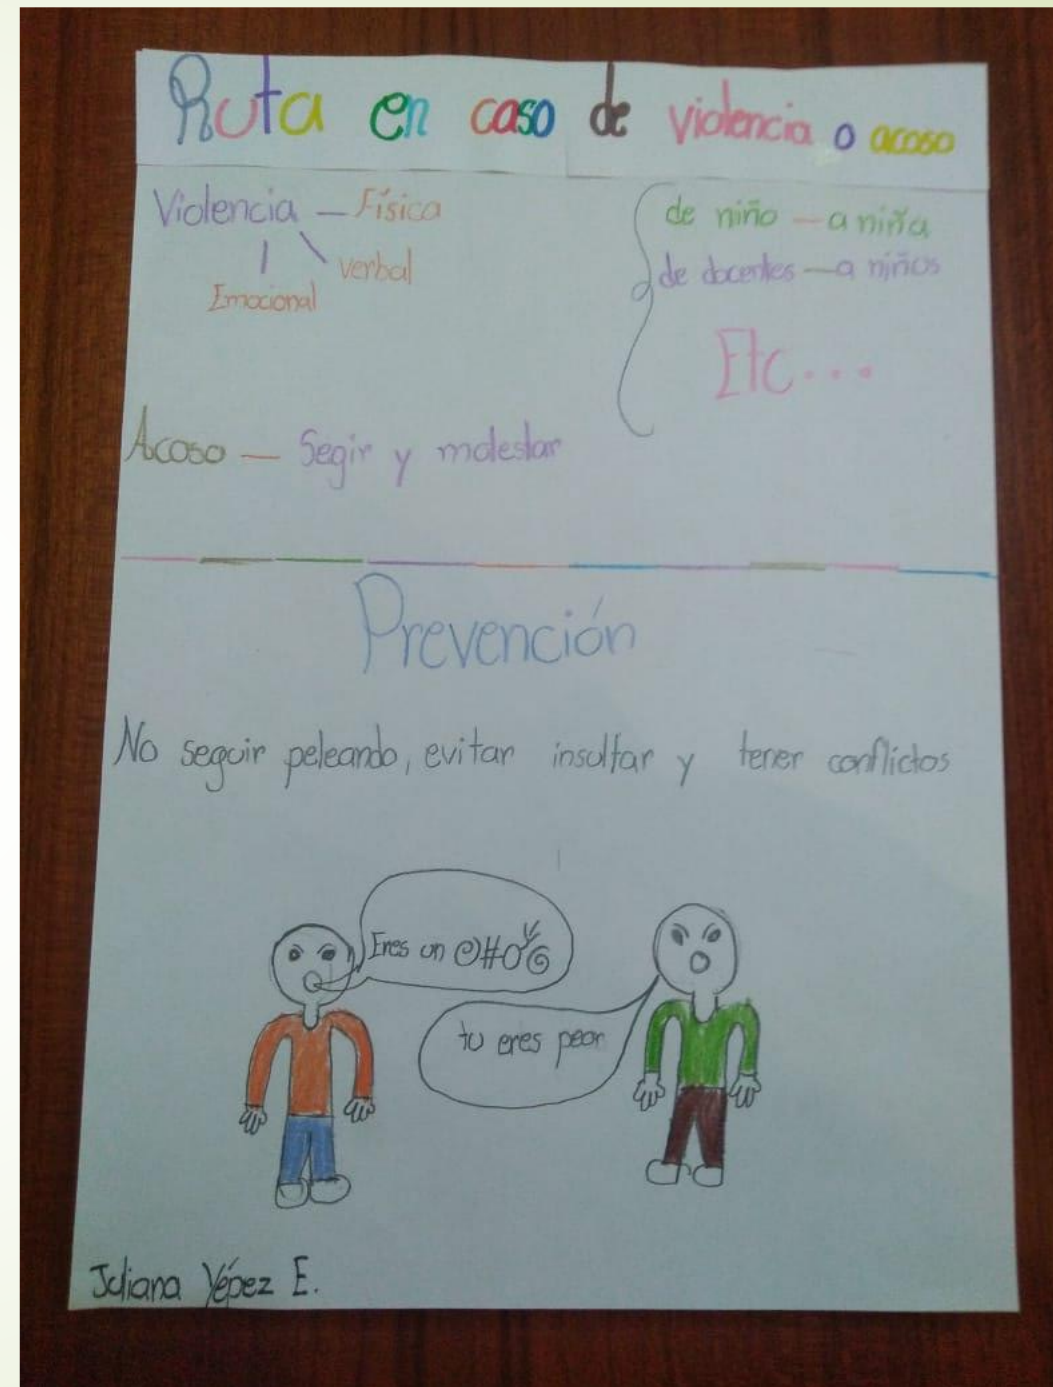 Ruta en caso de violencia o acoso
Violencia — Física
verbal
Emocional
de niño — a niña
de docentes — a niños
Etc...
Acoso — Segir y molestar
Prevención
No seguir peleando, evitar insultar y tener conflictos
Eres un @#
tu eres peor
Juliana Yépez E.